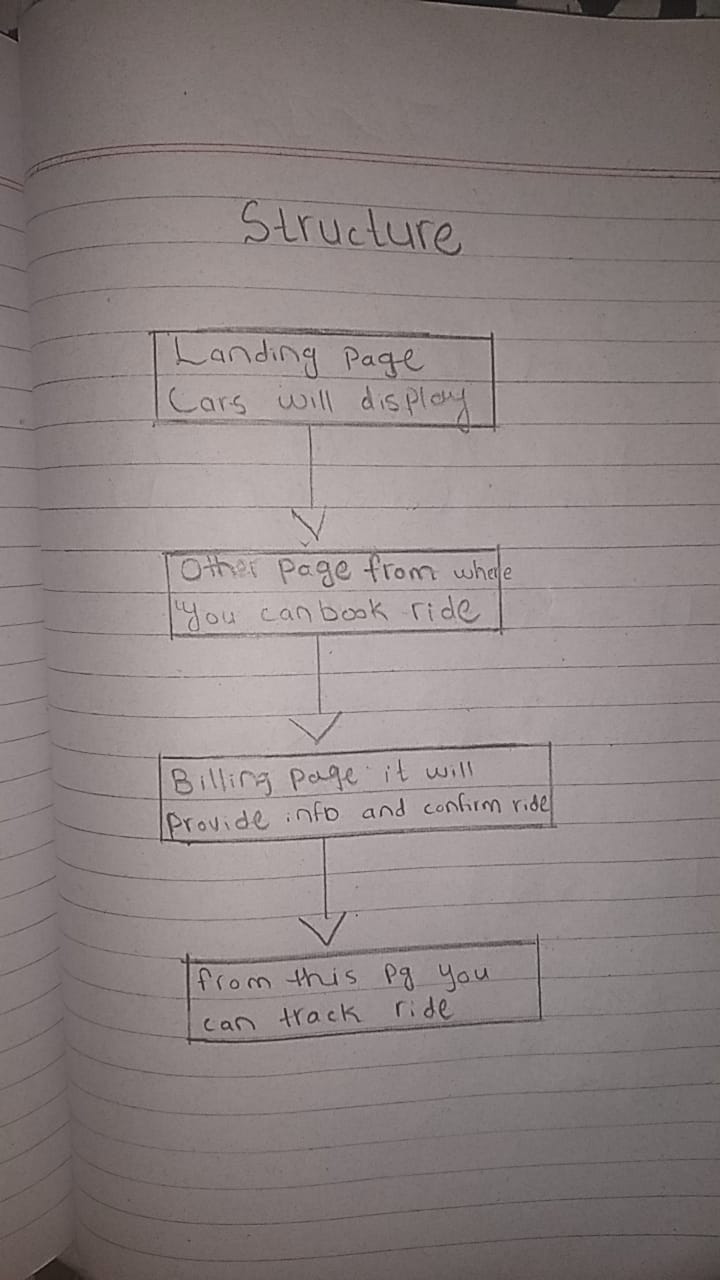 Structure
Landing Page
Cars will display
Other page from where
You can book ride
Billing page it will
Provide info and confirm ride
from this pg you
can track ride